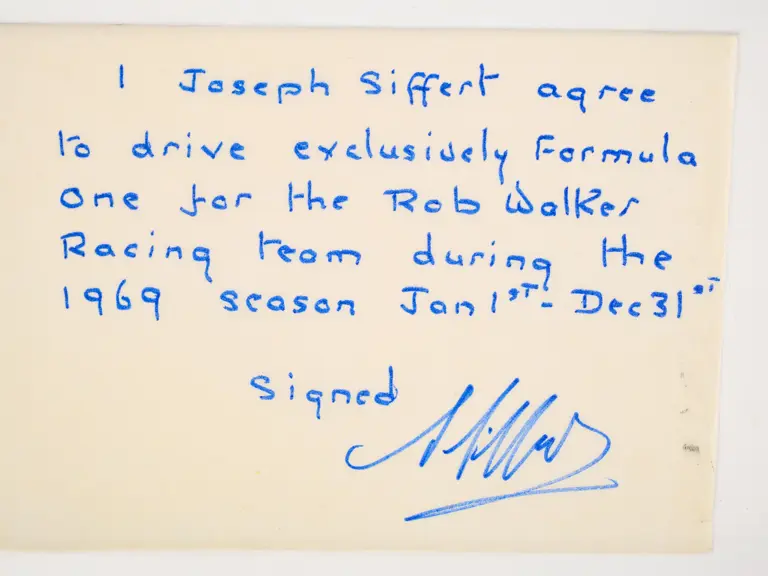 I Joseph Siffert agree
to drive exclusively Formula
One for the Rob Walker
Racing team during the
1969 season Jan 1st - Dec 31st
Signed Siffert